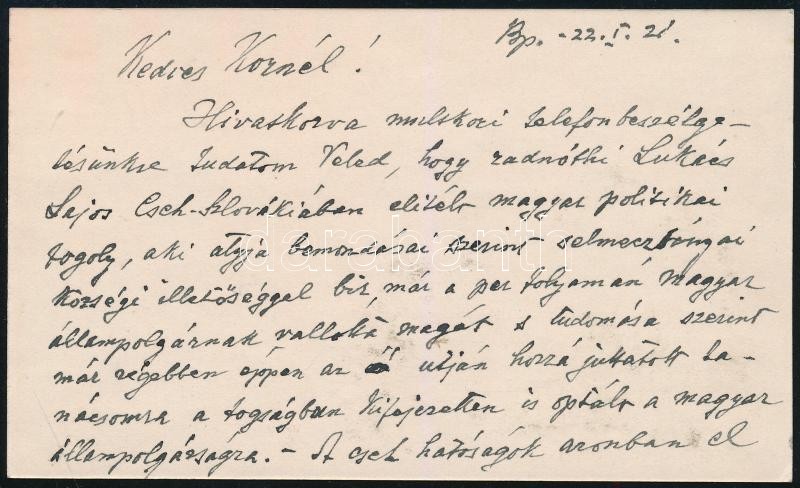 Bp. -22. I. 21.
Kedves Kornél!
Hivatkozva multkori telefonbeszélge-
tésünkre tudatom Veled, hogy radnóthi Lukács
Lajos Cseh-Szlovákiában elitélt magyar politikai
fogoly, aki atyja bemondásai szerint selmeczbányai
községi illetőséggel bir, már a per folyamán magyar
állampolgárnak vallotta magát s tudomása szerint
már régebben éppen az utján hozzá juttatott ta-
nácsomra a fogságban kifejezetten is optált a magyar
állampolgárságra. - A cseh hatóságok azonban el
darabanth